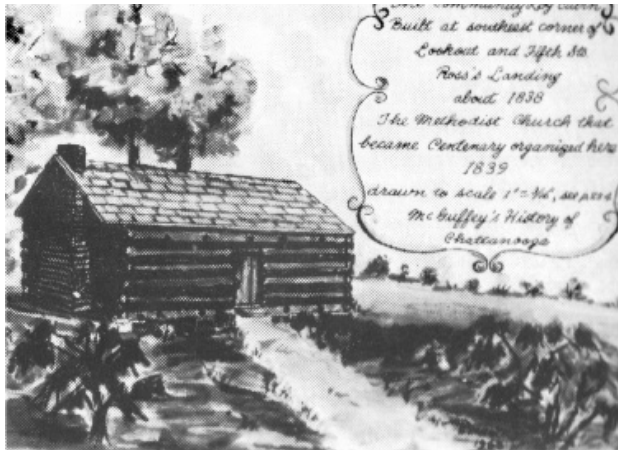 Community Log Cabin
Built at southeast corner of
Lookout and Fifth Sts.
Ross's Landing
about 1838
The Methodist Church that
became Centenary organized here
1839
drawn to scale 1"=
McGuffey's History of
Chattanooga